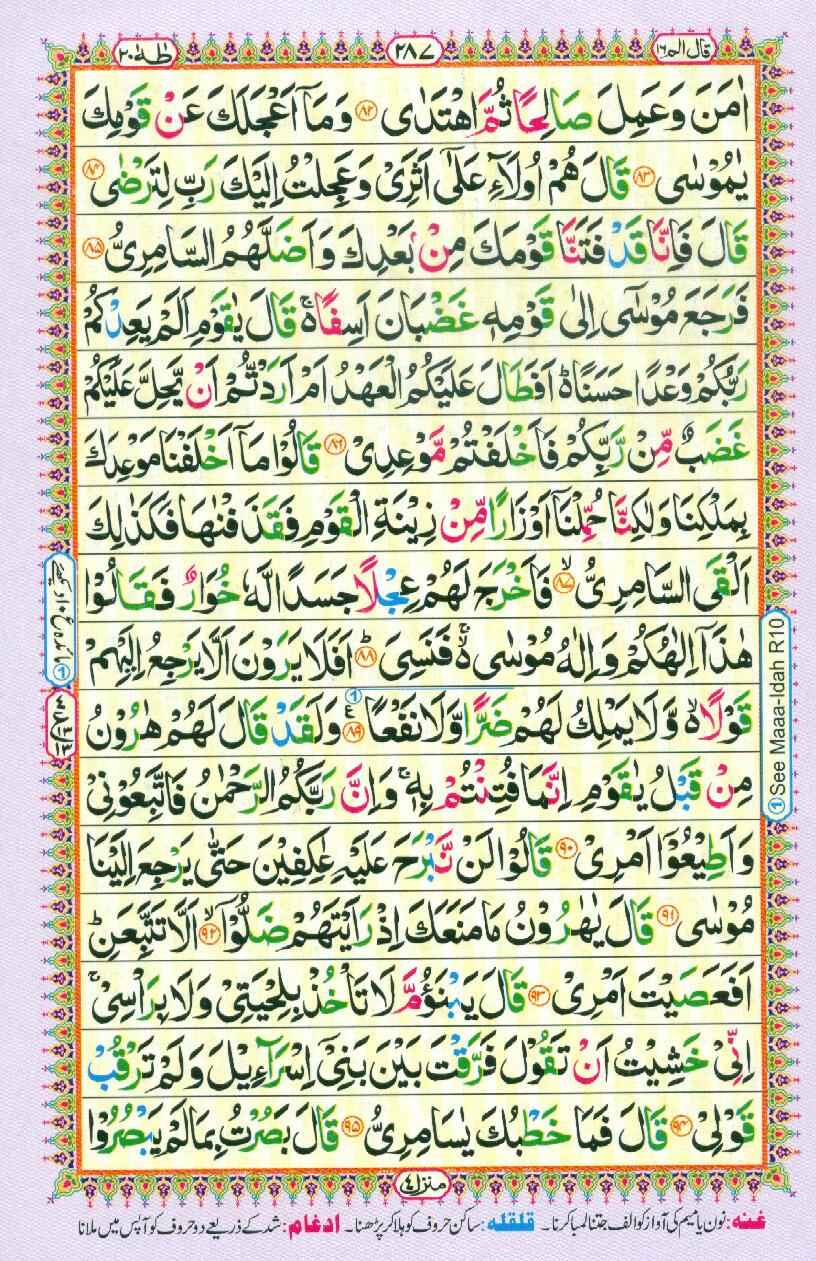 قال الم ١٦
٢٨٧
طٰهٰ ٢٠
اٰمَنَ وَعَمِلَ صَالِحًا ثُمَّ اهْتَدٰى ﴿۸۲﴾ وَمَاۤ اَعْجَلَكَ عَنْ قَوْمِكَ
يٰمُوْسٰى ﴿۸۳﴾ قَالَ هُمْ اُولَآءِ عَلٰٓى اَثَرِىْ وَعَجِلْتُ اِلَيْكَ رَبِّ لِتَرْضٰى ﴿۸۴﴾
قَالَ فَاِنَّا قَدْ فَتَنَّا قَوْمَكَ مِنْۢ بَعْدِكَ وَاَضَلَّهُمُ السَّامِرِىُّ ﴿۸۵﴾
فَرَجَعَ مُوْسٰٓى اِلٰى قَوْمِهٖ غَضْبَانَ اَسِفًا ۚ قَالَ يٰقَوْمِ اَلَمْ يَعِدْكُمْ
رَبُّكُمْ وَعْدًا حَسَنًا ؕ اَفَطَالَ عَلَيْكُمُ الْعَهْدُ اَمْ اَرَدْتُّمْ اَنْ يَّحِلَّ عَلَيْكُمْ
غَضَبٌ مِّنْ رَّبِّكُمْ فَاَخْلَفْتُمْ مَّوْعِدِىْ ﴿۸۶﴾ قَالُوْا مَاۤ اَخْلَفْنَا مَوْعِدَكَ
بِمَلْكِنَا وَلٰكِنَّا حُمِّلْنَاۤ اَوْزَارًا مِّنْ زِيْنَةِ الْقَوْمِ فَقَذَفْنٰهَا فَكَذٰلِكَ
اَلْقَى السَّامِرِىُّ ۙ﴿۸۷﴾ فَاَخْرَجَ لَهُمْ عِجْلًا جَسَدًا لَّهٗ خُوَارٌ فَقَالُوْا
هٰذَاۤ اِلٰهُكُمْ وَاِلٰهُ مُوْسٰى ۬ فَنَسِىَ ؕ﴿۸۸﴾ اَفَلَا يَرَوْنَ اَلَّا يَرْجِعُ اِلَيْهِمْ
قَوْلًا ۙ وَّلَا يَمْلِكُ لَهُمْ ضَرًّا وَّلَا نَفْعًا ﴿۸۹﴾ ع ① وَلَقَدْ قَالَ لَهُمْ هٰرُوْنُ
مِنْ قَبْلُ يٰقَوْمِ اِنَّمَا فُتِنْتُمْ بِهٖ ۚ وَاِنَّ رَبَّكُمُ الرَّحْمٰنُ فَاتَّبِعُوْنِىْ
وَاَطِيْعُوْۤا اَمْرِىْ ﴿۹۰﴾ قَالُوْا لَنْ نَّبْرَحَ عَلَيْهِ عٰكِفِيْنَ حَتّٰى يَرْجِعَ اِلَيْنَا
مُوْسٰى ﴿۹۱﴾ قَالَ يٰهٰرُوْنُ مَا مَنَعَكَ اِذْ رَاَيْتَهُمْ ضَلُّوْۤا ۙ﴿۹۲﴾ اَلَّا تَتَّبِعَنِ ؕ
اَفَعَصَيْتَ اَمْرِىْ ﴿۹۳﴾ قَالَ يَبْنَؤُمَّ لَا تَاْخُذْ بِلِحْيَتِىْ وَلَا بِرَاْسِىْ ۚ
اِنِّىْ خَشِيْتُ اَنْ تَقُوْلَ فَرَّقْتَ بَيْنَ بَنِىْۤ اِسْرَآءِيْلَ وَلَمْ تَرْقُبْ
قَوْلِىْ ﴿۹۴﴾ قَالَ فَمَا خَطْبُكَ يٰسَامِرِىُّ ﴿۹۵﴾ قَالَ بَصُرْتُ بِمَا لَمْ يَبْصُرُوْا
① See Maaa-Idah R10
منزل ٤
غنه: نون یا میم کی آواز کو الف جتنا لمبا کرنا۔ قلقله: ساکن حروف کو ہلا کر پڑھنا۔ ادغام: شد کے ذریعے دو حروف کو آپس میں ملانا